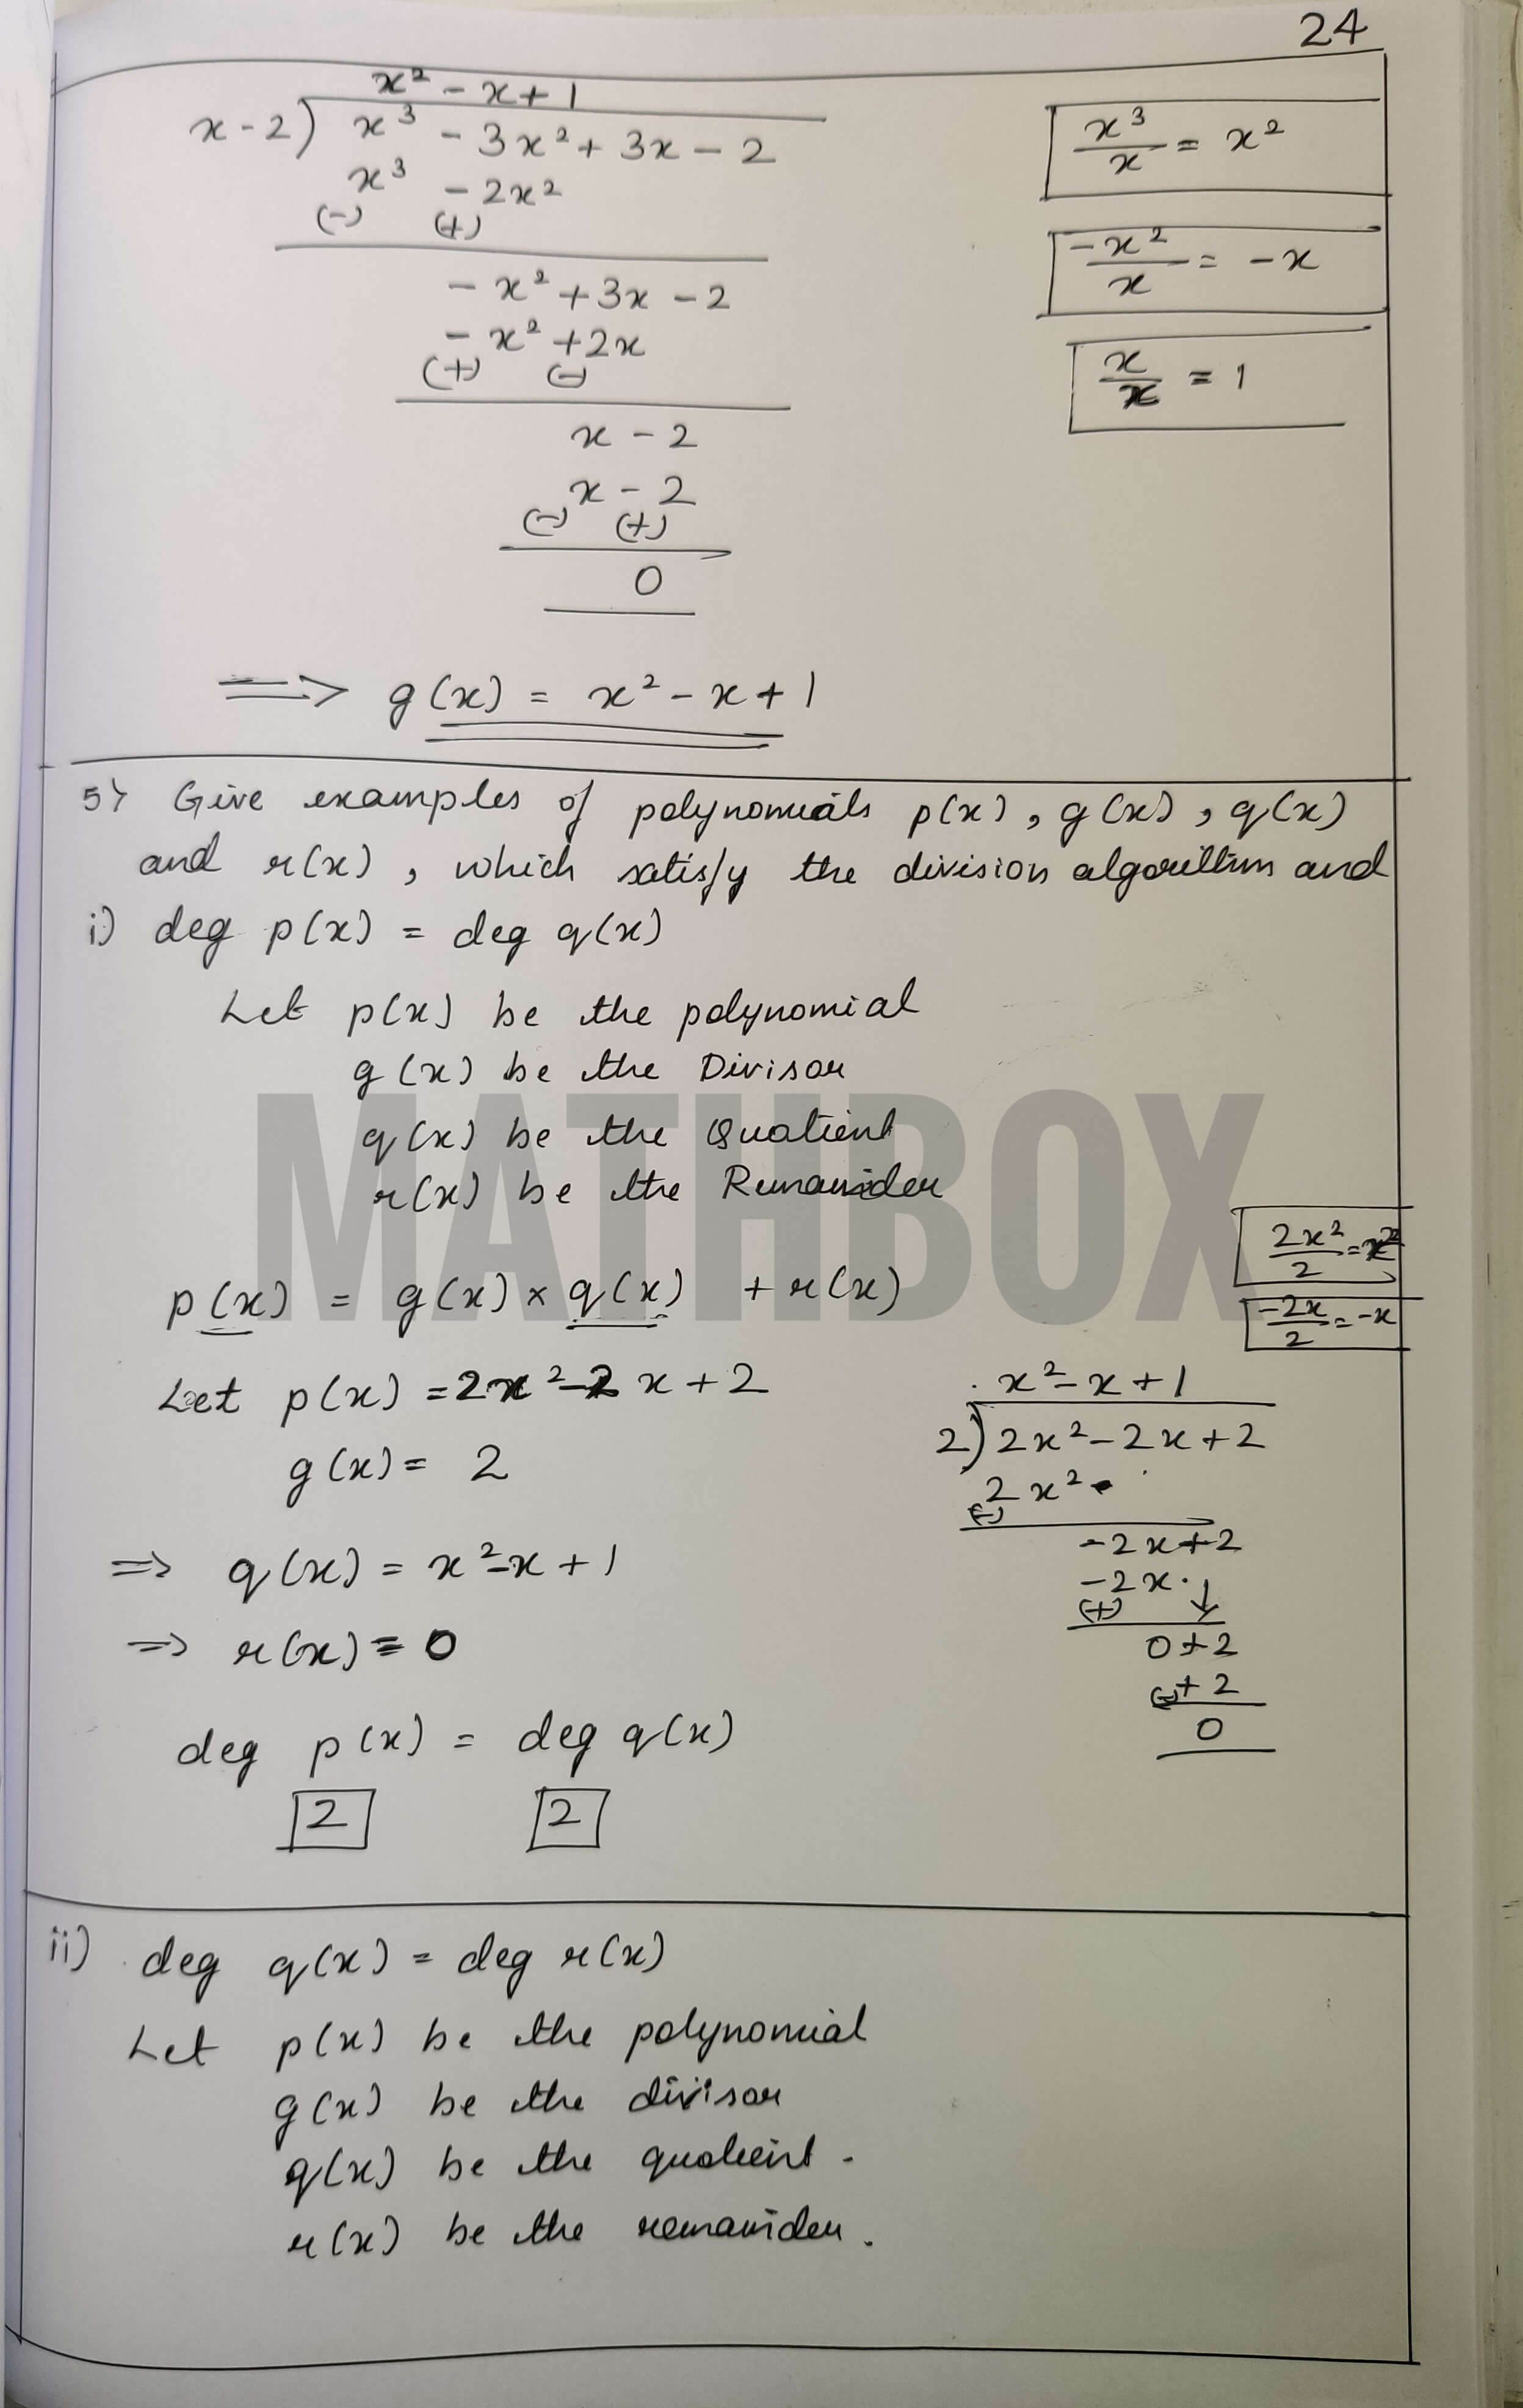 24
x² - x + 1
x - 2) x³ - 3x² + 3x - 2
x³ - 2x²
(-) (+)
- x² + 3x - 2
- x² + 2x
(+) (-)
x - 2
x - 2
(-) (+)
0
x³/x = x²
-x²/x = -x
x/x = 1
⇒ g(x) = x² - x + 1
5) Give examples of polynomials p(x), g(x), q(x)
and r(x), which satisfy the division algorithm and
i) deg p(x) = deg q(x)
Let p(x) be the polynomial
g(x) be the Divisor
q(x) be the Quotient
r(x) be the Remainder
MATHBOX
p(x) = g(x) × q(x) + r(x)
Let p(x) = 2x² - 2x + 2
g(x) = 2
⇒ q(x) = x² - x + 1
⇒ r(x) = 0
deg p(x) = deg q(x)
2 2
2x²/2 = x²
-2x/2 = -x
x² - x + 1
2) 2x² - 2x + 2
2x²
(-)
-2x + 2
-2x ↓
(+)
0 + 2
(-) + 2
0
ii) deg q(x) = deg r(x)
Let p(x) be the polynomial
g(x) be the divisor
q(x) be the quotient.
r(x) be the remainder.